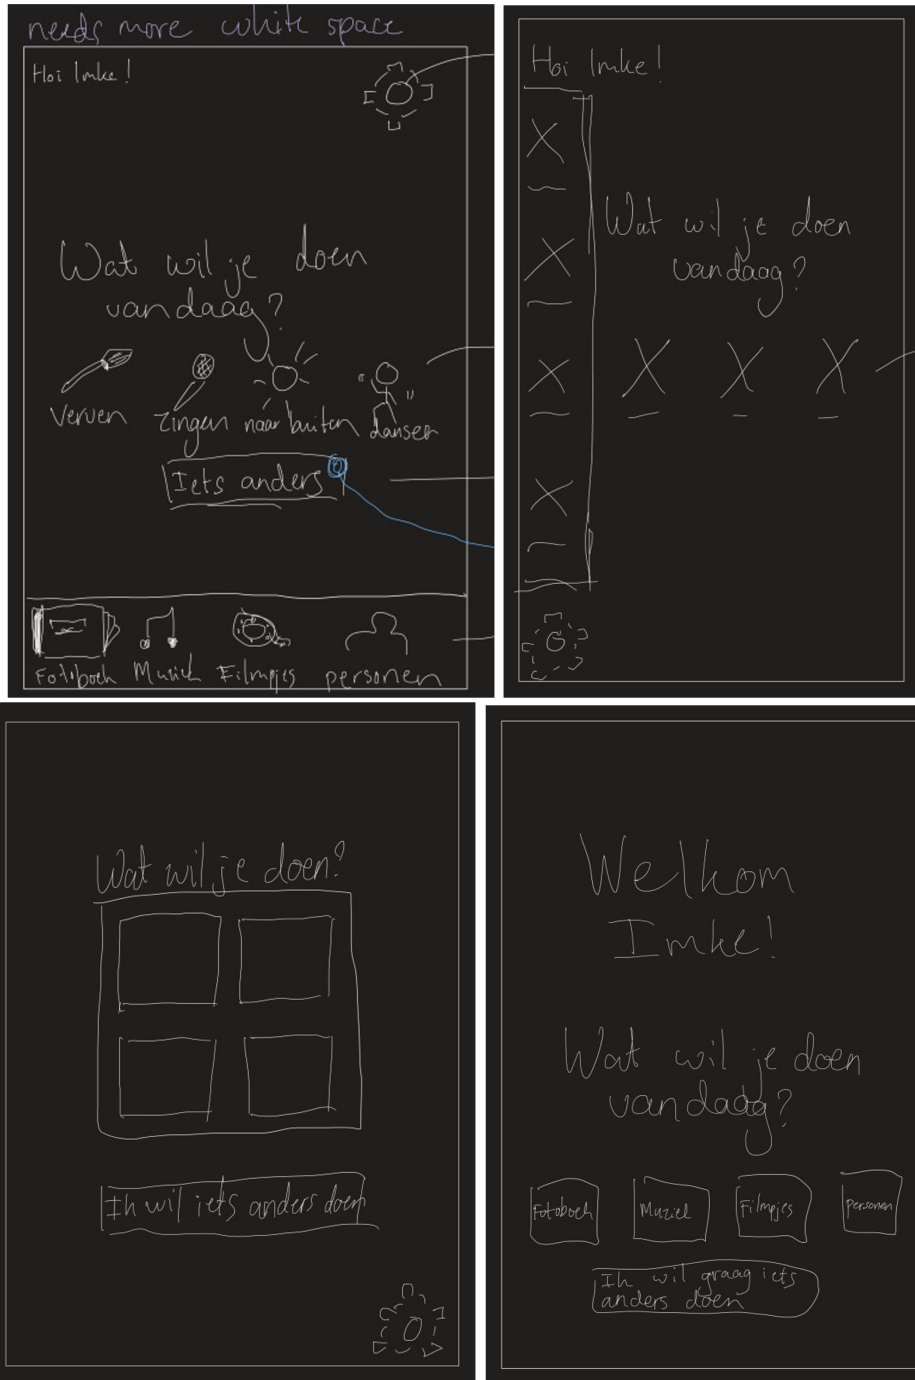 needs more white space
Hoi Imke!
Wat wil je doen
vandaag?
Verven zingen naar buiten dansen
Iets anders
Fotoboek Muziek Filmpjes personen
Hoi Imke!
Wat wil je doen
vandaag?
Wat wil je doen?
Ik wil iets anders doen
Welkom
Imke!
Wat wil je doen
vandaag?
Fotoboek Muziek Filmpjes personen
Ik wil graag iets
anders doen